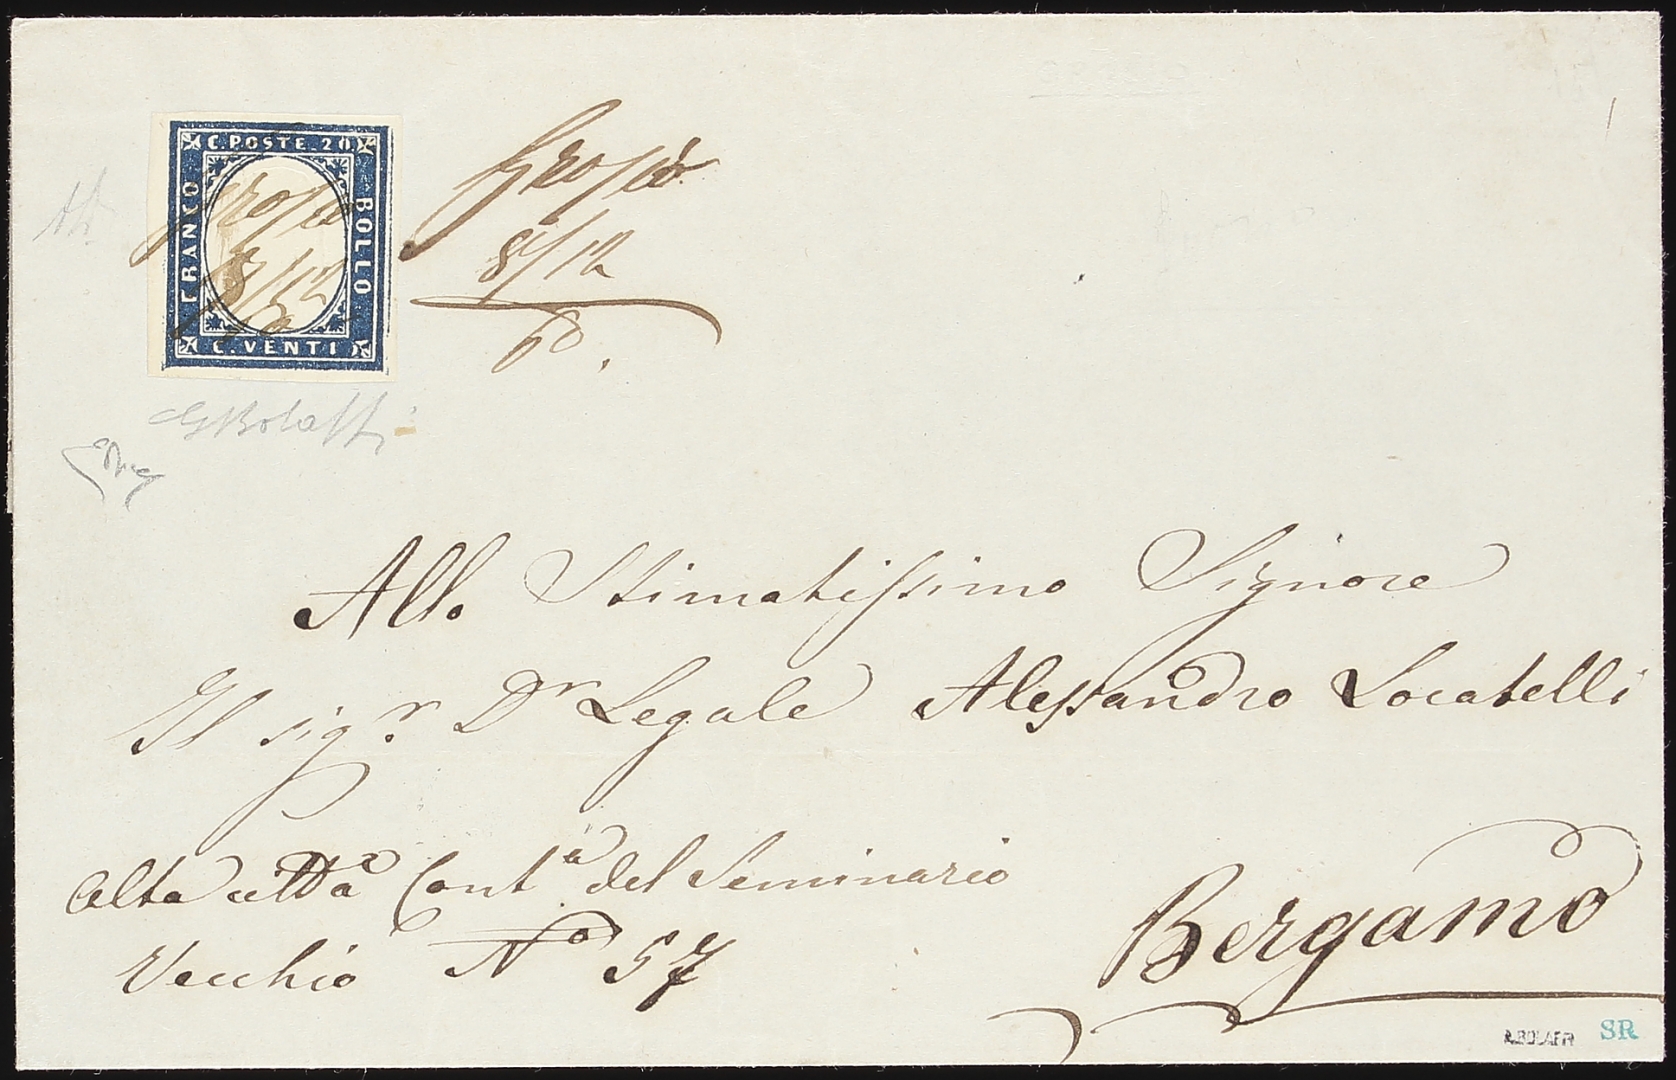 C. POSTE. 20
FRANCO
BOLLO
C. VENTI
Grosio
8/12
60.
Grosio
8/12
60
GBolaffi
Allo Stimatissimo Signore
Il sigr. Dr Legale Alessandro Locatelli
Alta città Conta del Seminario
Vecchio No 57
Bergamo
A.BOLAFFI
SR